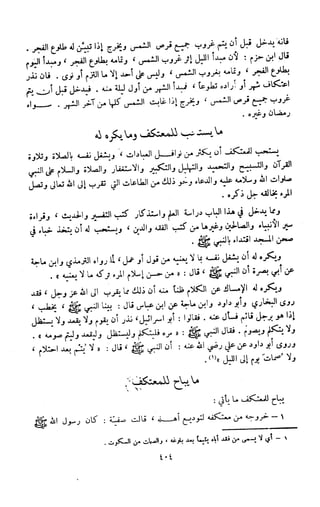 فانه يدخل قبل أن يتم غروب جميع قرص الشمس ويخرج إذا تبين له طلوع الفجر .
قال ابن حزم : لأن مبدأ الليل إثر غروب الشمس ، وتمامه بطلوع الفجر ، ومبدأ اليوم
بطلوع الفجر ، وتمامه بغروب الشمس ، وليس على أحد إلا ما التزم أو نوى . فان نذر
اعتكاف شهر أو أراده تطوعا ، فمبدأ الشهر من أول ليلة منه . فيدخل قبل أن يتم
غروب جميع قرص الشمس ، ويخرج إذا غابت الشمس كلها من آخر الشهر . سواء
رمضان وغيره .
ما يستحب للمعتكف وما يكره له
يستحب للمعتكف أن يكثر من نوافل العبادات ، ويشغل نفسه بالصلاة وتلاوة
القرآن والتسبيح والتحميد والتهليل والتكبير والاستغفار والصلاة والسلام على النبي
صلوات الله وسلامه عليه والدعاء ونحو ذلك من الطاعات التي تقرب إلى الله تعالى وتصل
المرء بخالقه جل ذكره .
ومما يدخل في هذا الباب دراسة العلم واستذكار كتب التفسير والحديث ، وقراءة
سير الأنبياء والصالحين وغيرها من كتب الفقه والدين ، ويستحب له أن يتخذ خباء في
صحن المسجد اقتداء بالنبي ﷺ .
ويكره له أن يشغل نفسه بما لا يعنيه من قول أو عمل ، لما رواه الترمذي وابن ماجة
عن أبي بصرة أن النبي ﷺ ، قال : « من حسن إسلام المرء تركه ما لا يعنيه » .
ويكره له الإمساك عن الكلام ظنا منه أن ذلك مما يقرب إلى الله عز وجل ، فقد
روى البخاري وأبو داود وابن ماجة عن ابن عباس قال : بينا النبي ﷺ ، يخطب ،
إذا هو برجل قائم فسأل عنه . فقالوا : أبو اسرائيل، نذر أن يقوم ولا يقعد ولا يستظل
ولا يتكلم ويصوم . فقال النبي ﷺ : « مره فليتكلم وليستظل وليقعد وليتم صومه » .
وروى أبو داود عن علي رضي الله عنه : أن النبي ﷺ ، قال : « لا يتم بعد احتلام ،
ولا صمات يوم إلى الليل »(١).
ما يباح للمعتكف
يباح للمعتكف ما يأتي :
١ – خروجه من معتكفه لتوديع أهله ، قالت صفية : كان رسول الله ﷺ
١ – أي لا يسمى من فقد أباه يتيما بعد بلوغه ، والصمات من السكوت .
٤٠٤